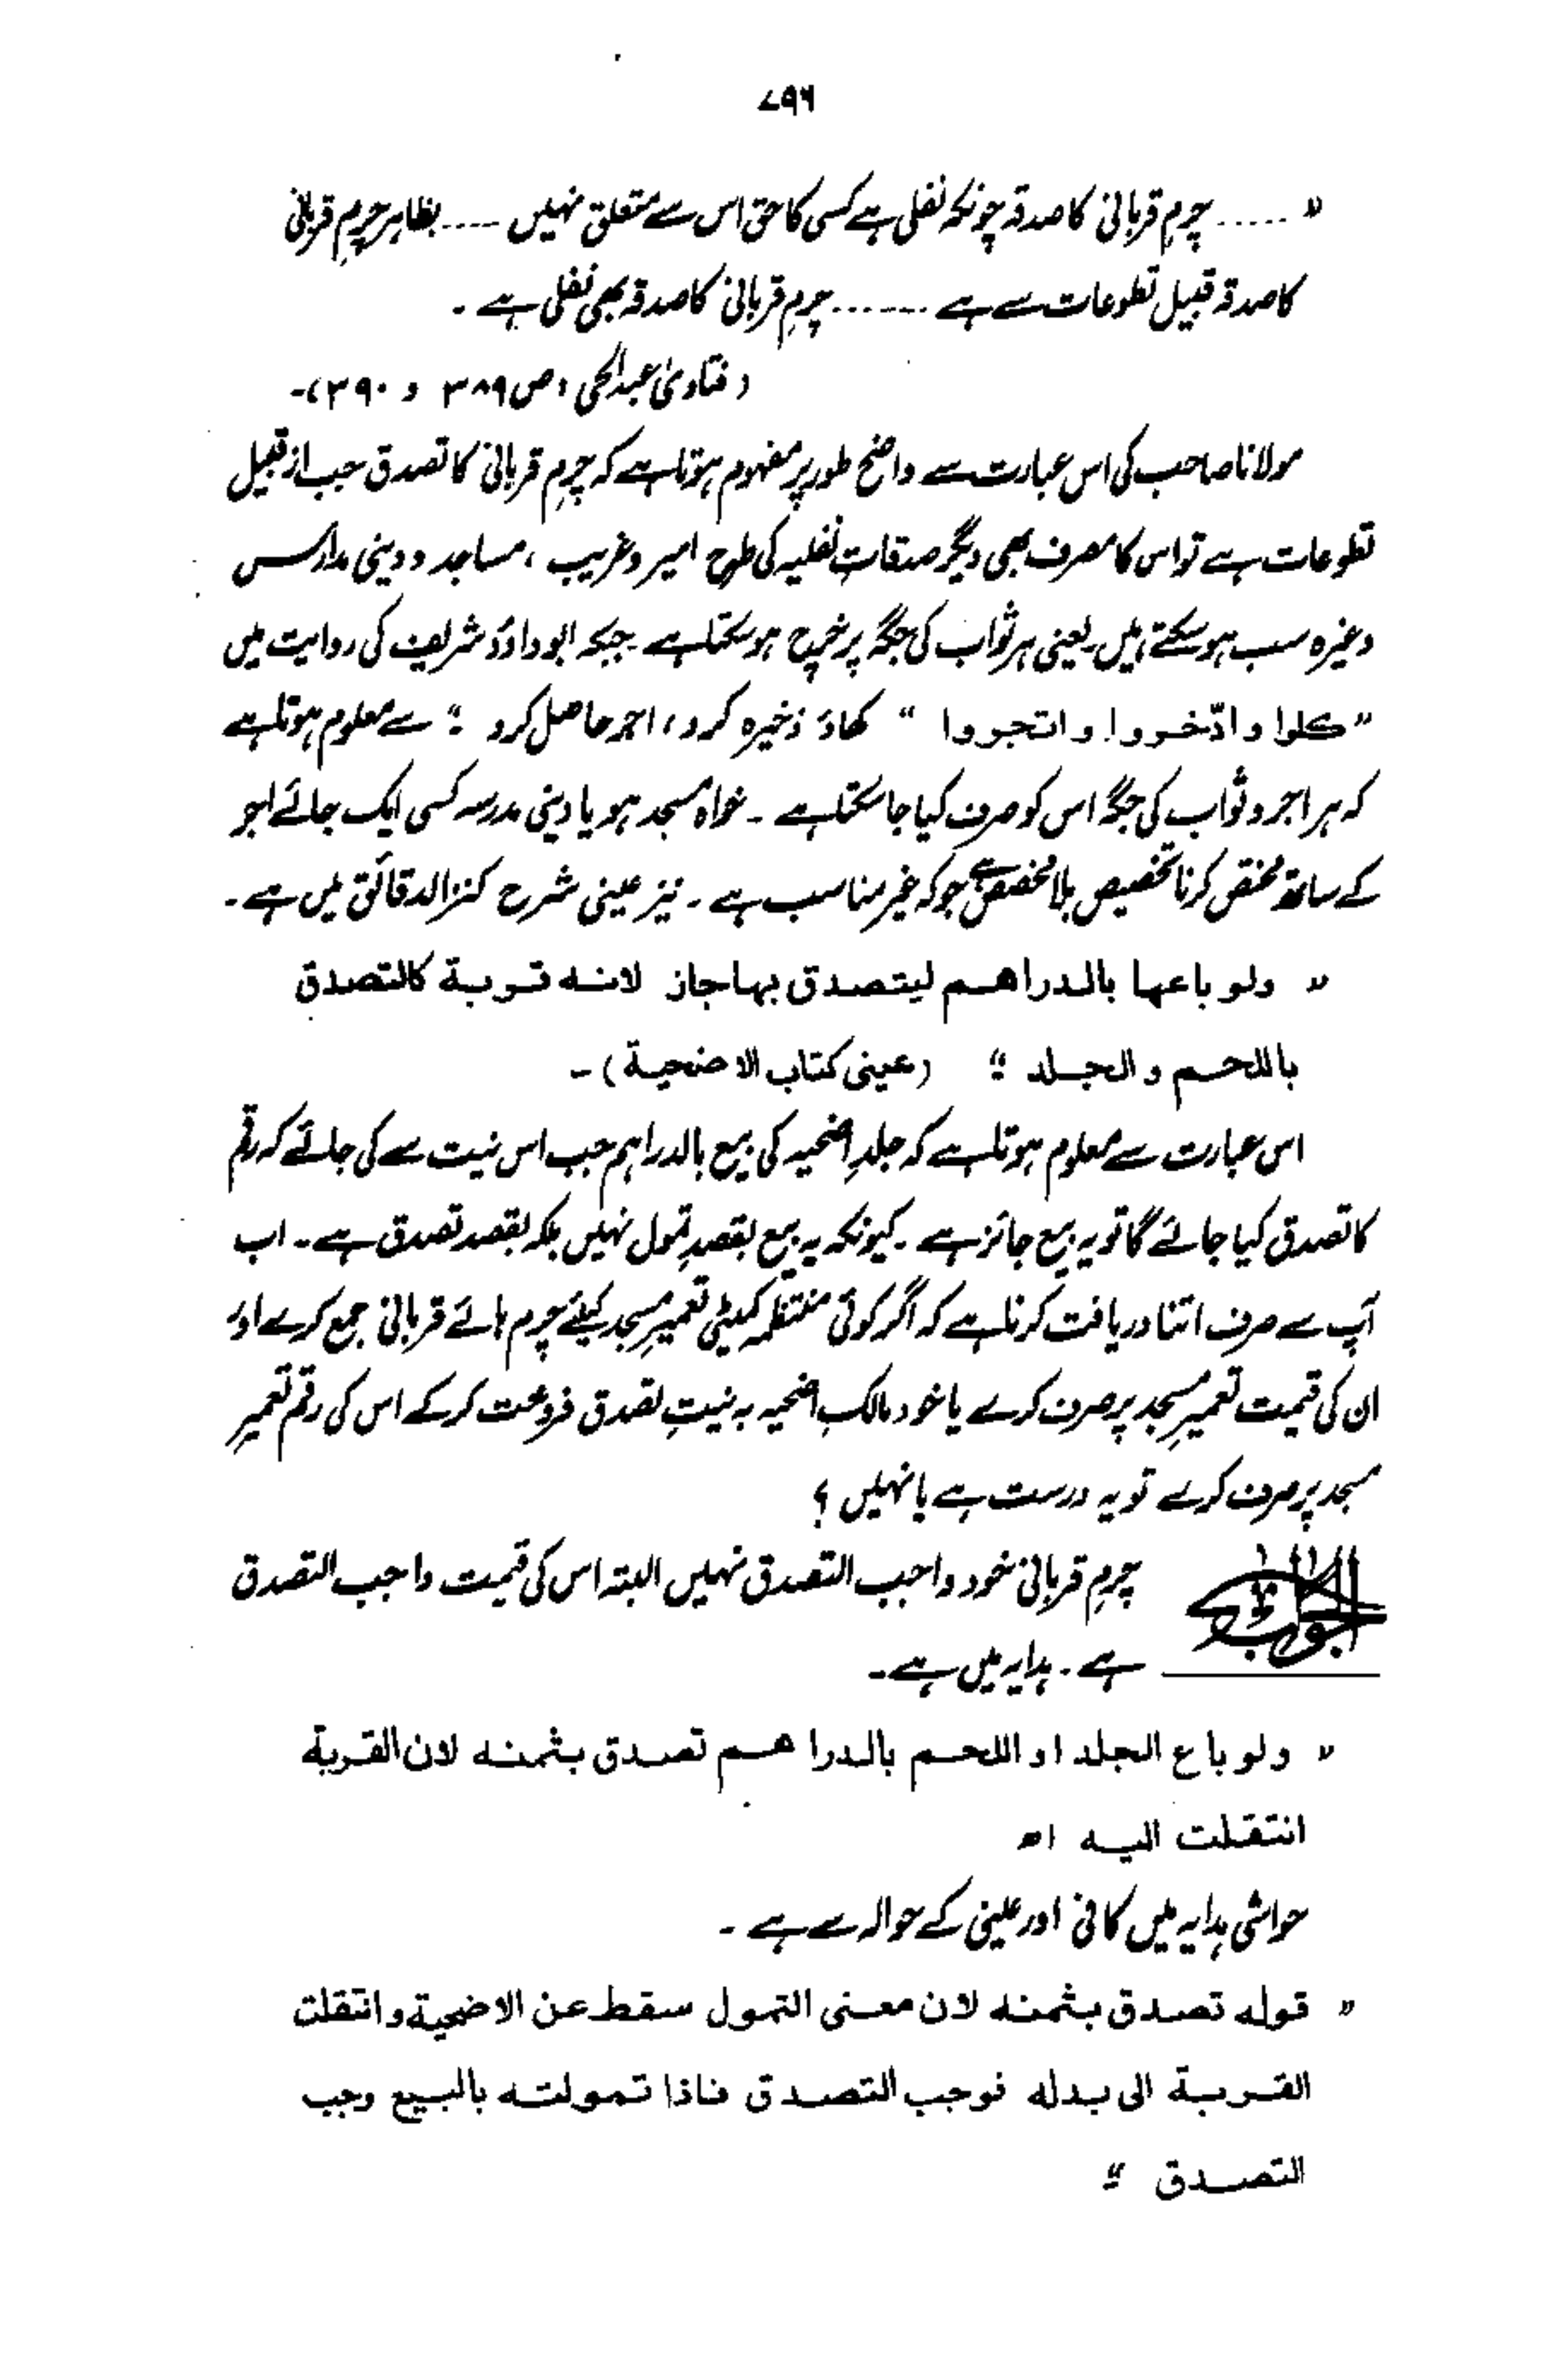 ۷۹۶
" ...... چرمِ قربانی کا صدقہ چونکہ نفلی ہے کسی کا حق اس سے متعلق نہیں ..... بظاہر چرمِ قربانی
کا صدقہ قبیل تطوعات سے ہے ...... چرمِ قربانی کا صدقہ بھی نفلی ہے ۔
(فتاویٰ عبدالحی، ص ۳۸۹ و ۳۹۰)۔
مولانا صاحب کی اس عبارت سے واضح طور پر مفہوم ہوتا ہے کہ چرمِ قربانی کا تصدق جب از قبیل
تطوعات ہے تو اس کا مصرف بھی دیگر صدقاتِ نفلیہ کی طرح امیر و غریب ، مساجد و دینی مدارس
وغیرہ سب ہو سکتے ہیں یعنی ہر ثواب کی جگہ پر خرچ ہو سکتا ہے جبکہ ابوداؤد شریف کی روایت میں
"کلوا وادّخروا واتجروا " کھاؤ ذخیرہ کرو، اجر حاصل کرو ؛" سے معلوم ہوتا ہے
کہ ہر اجر و ثواب کی جگہ اس کو صرف کیا جا سکتا ہے ۔ خواہ مسجد ہو یا دینی مدرسہ کسی ایک جائے اجر
کے ساتھ مختص کرنا تخصیص بلا مخصص ہے جو کہ غیر مناسب ہے ۔ نیز عینی شرح کنزالدقائق میں ہے ۔
" ولو باعها بالدراهم ليتصدق بها جاز لانه قربة كالتصدق
باللحم والجلد ؛" (عینی کتاب الاضحیة)۔
اس عبارت سے معلوم ہوتا ہے کہ جلدِ اضحیہ کی بیع بالدراہم جب اس نیت سے کی جائے کہ رقم
کا تصدق کیا جائے گا تو یہ بیع جائز ہے ۔ کیونکہ یہ بیع بقصدِ تمول نہیں بلکہ بقصد تصدق ہے ۔ اب
آپ سے صرف اتنا دریافت کرنا ہے کہ اگر کوئی منتظمہ کمیٹی تعمیرِ مسجد کیلئے چرم ہائے قربانی جمع کرے اور
ان کی قیمت تعمیرِ مسجد پر صرف کرے یا خود مالکِ اضحیہ بہ نیتِ تصدق فروخت کر کے اس کی رقم تعمیرِ
مسجد پر صرف کرے تو یہ درست ہے یا نہیں ؟
الجواب چرمِ قربانی خود واجب التصدق نہیں البتہ اس کی قیمت واجب التصدق
ہے ۔ ہدایہ میں ہے ۔
" ولو باع الجلد او اللحم بالدراهم تصدق بثمنه لان القربة
انتقلت اليه اھ
حواشی ہدایہ میں کافی اور عینی کے حوالہ سے ہے ۔
" قوله تصدق بثمنه لان معنى التمول سقط عن الاضحية وانتقلت
القربة الى بدله فوجب التصدق فاذا تمولته بالبيع وجب
التصدق ؛"